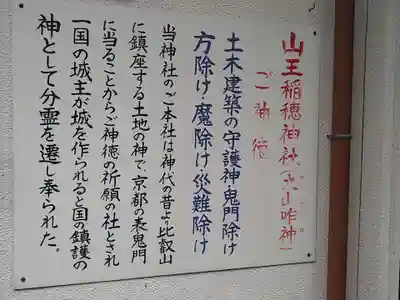 山王稲穂神社「大山咋神」
ご神徳
土木建築の守護神・鬼門除け
方除け・魔除け・災難除け
当神社のご本社は神代の昔より比叡山
に鎮座する土地の神で、京都の表鬼門
に当ることからご神徳の祈願の社とされ
一国の城主が城を作られると国の鎮護の
神として分霊を遷し奉られた。